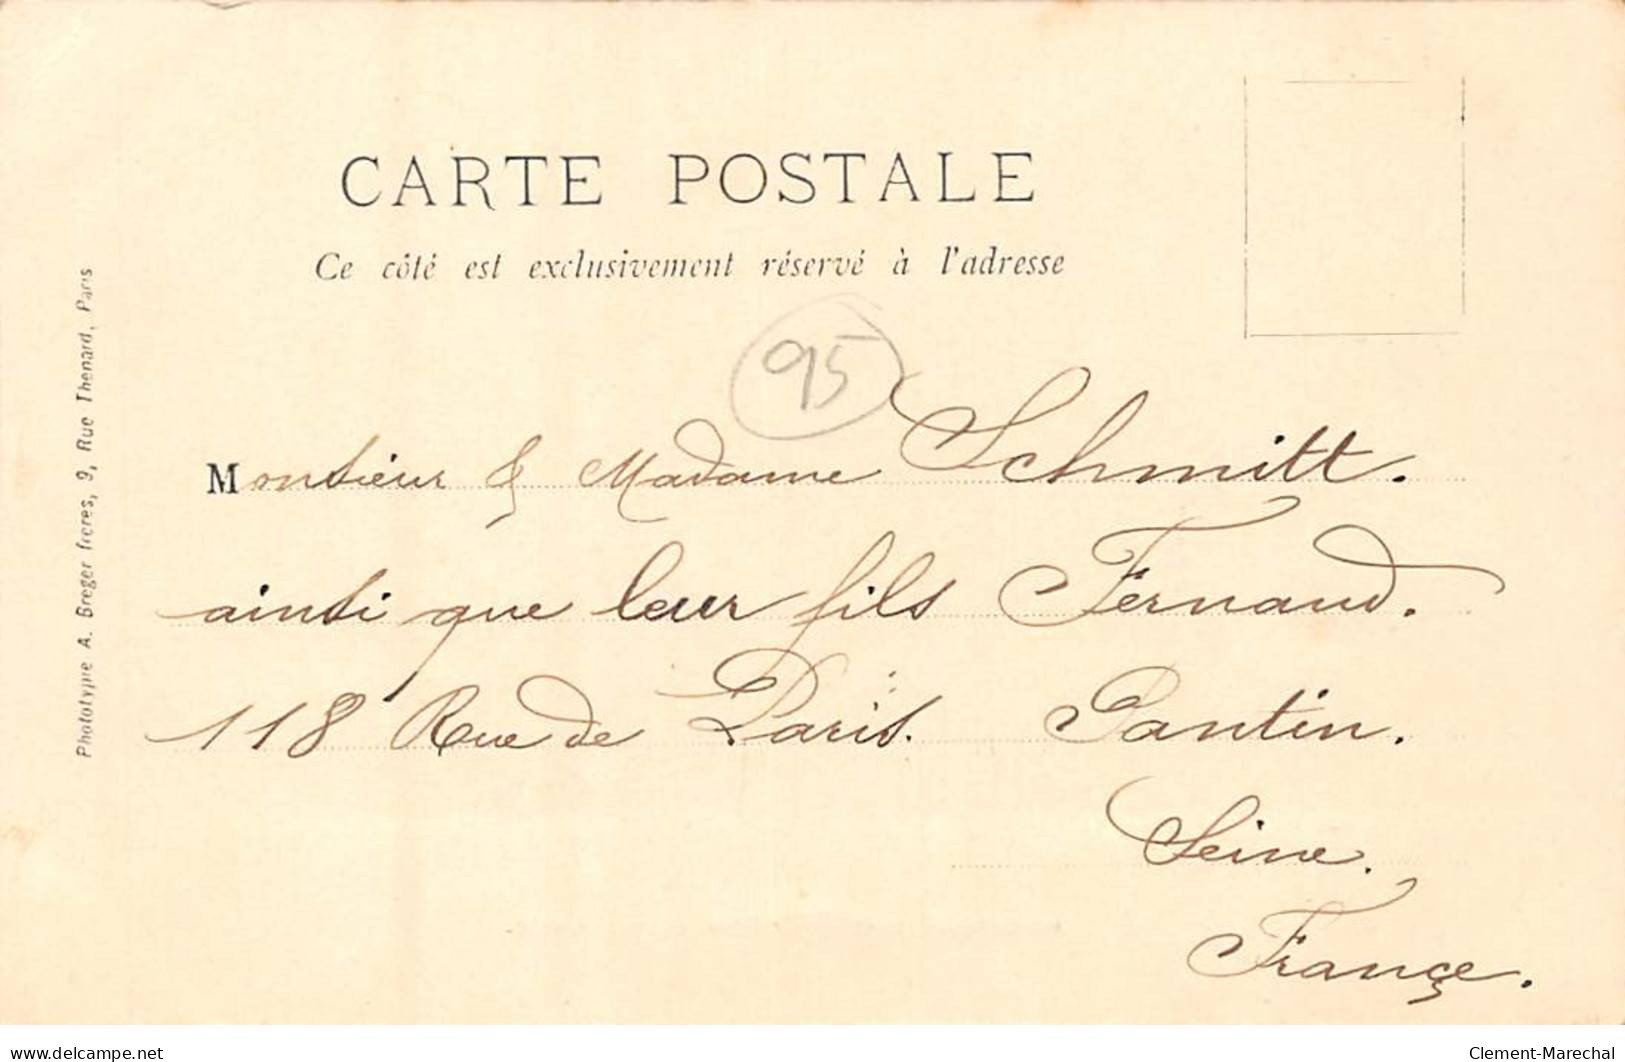 CARTE POSTALE
Ce côté est exclusivement réservé à l'adresse
95
Monsieur & Madame Schmitt.
ainsi que leur fils Fernand.
118 Rue de Paris. Pantin.
Seine.
Françe.
Phototypie A. Breger frères, 9, Rue Thenard, Paris
delcampe.net
Clement-Marechal